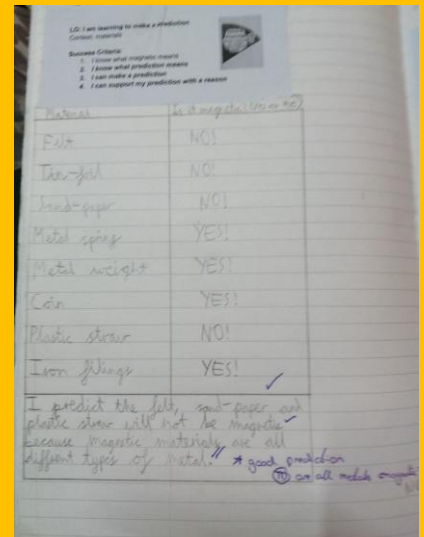 LO: I am learning to make a prediction
Context: materials
Success Criteria:
1. I know what magnetic means
2. I know what prediction means
3. I can make a prediction
4. I can support my prediction with a reason
Material Is it magnetic? (Yes or No)
Felt NO!
Tin-foil NO!
Sand-paper NO!
Metal spring YES!
Metal weight YES!
Coin YES!
Plastic straw NO!
Iron filings YES!
I predict the felt, sand-paper and
plastic straw will not be magnetic
because magnetic materials are all
different types of metal.
good prediction
are all metals magnetic